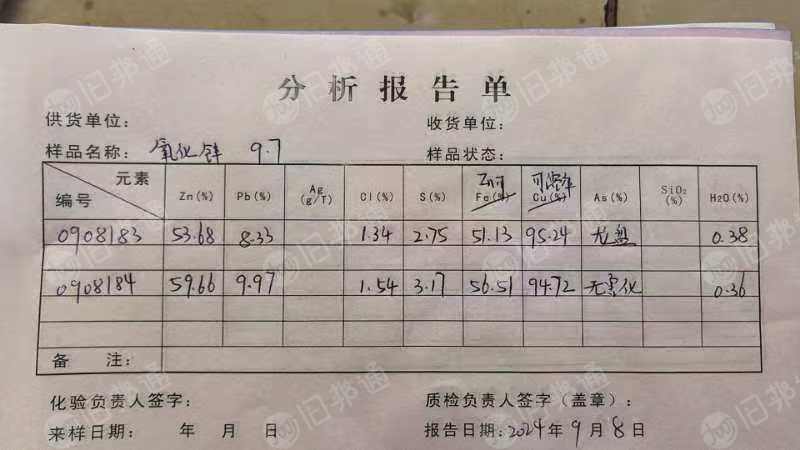 分析报告单
供货单位： 收货单位：
样品名称： 氧化锌 9.7 样品状态：
元素 编号 Zn(%) Pb(%) Ag (g/T) Cl(%) S(%) Zn可 Fe(%) 可溶率 Cu(%) As(%) SiO₂ (%) H₂O(%)
0908183 53.68 8.33 1.34 2.75 51.13 95.24 0.38
0908184 59.66 9.97 1.54 3.17 56.51 94.72 0.36
备注：
化验负责人签字： 质检负责人签字（盖章）：
来样日期： 年 月 日 报告日期：2024年9月8日
旧邦通